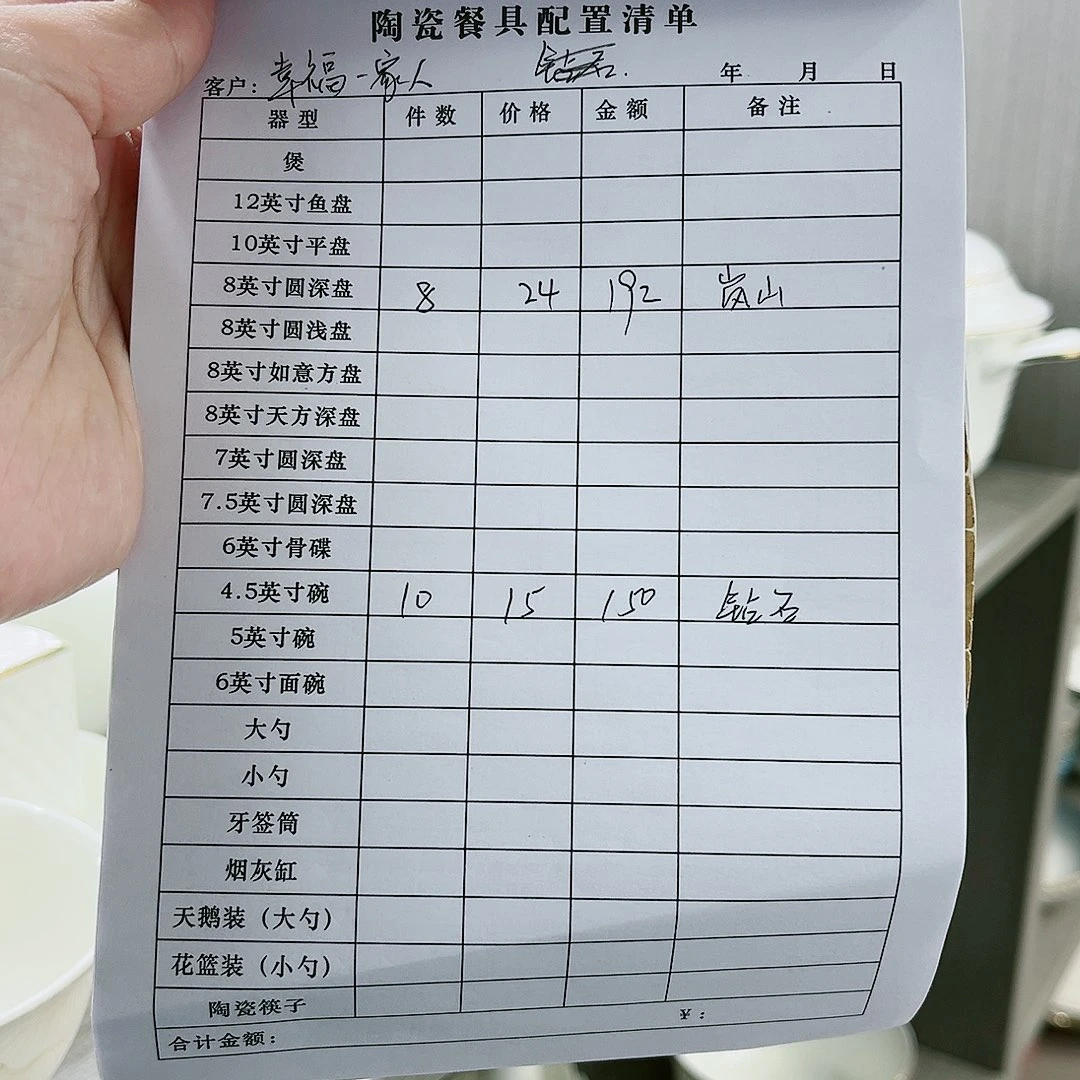 陶瓷餐具配置清单
客户：幸福一家人 钻石. 年 月 日
器型 件数 价格 金额 备注
煲
12英寸鱼盘
10英寸平盘
8英寸圆深盘 8 24 192 岚山
8英寸圆浅盘
8英寸如意方盘
8英寸天方深盘
7英寸圆深盘
7.5英寸圆深盘
6英寸骨碟
4.5英寸碗 10 15 150 钻石
5英寸碗
6英寸面碗
大勺
小勺
牙签筒
烟灰缸
天鹅装（大勺）
花篮装（小勺）
陶瓷筷子
合计金额： ¥：